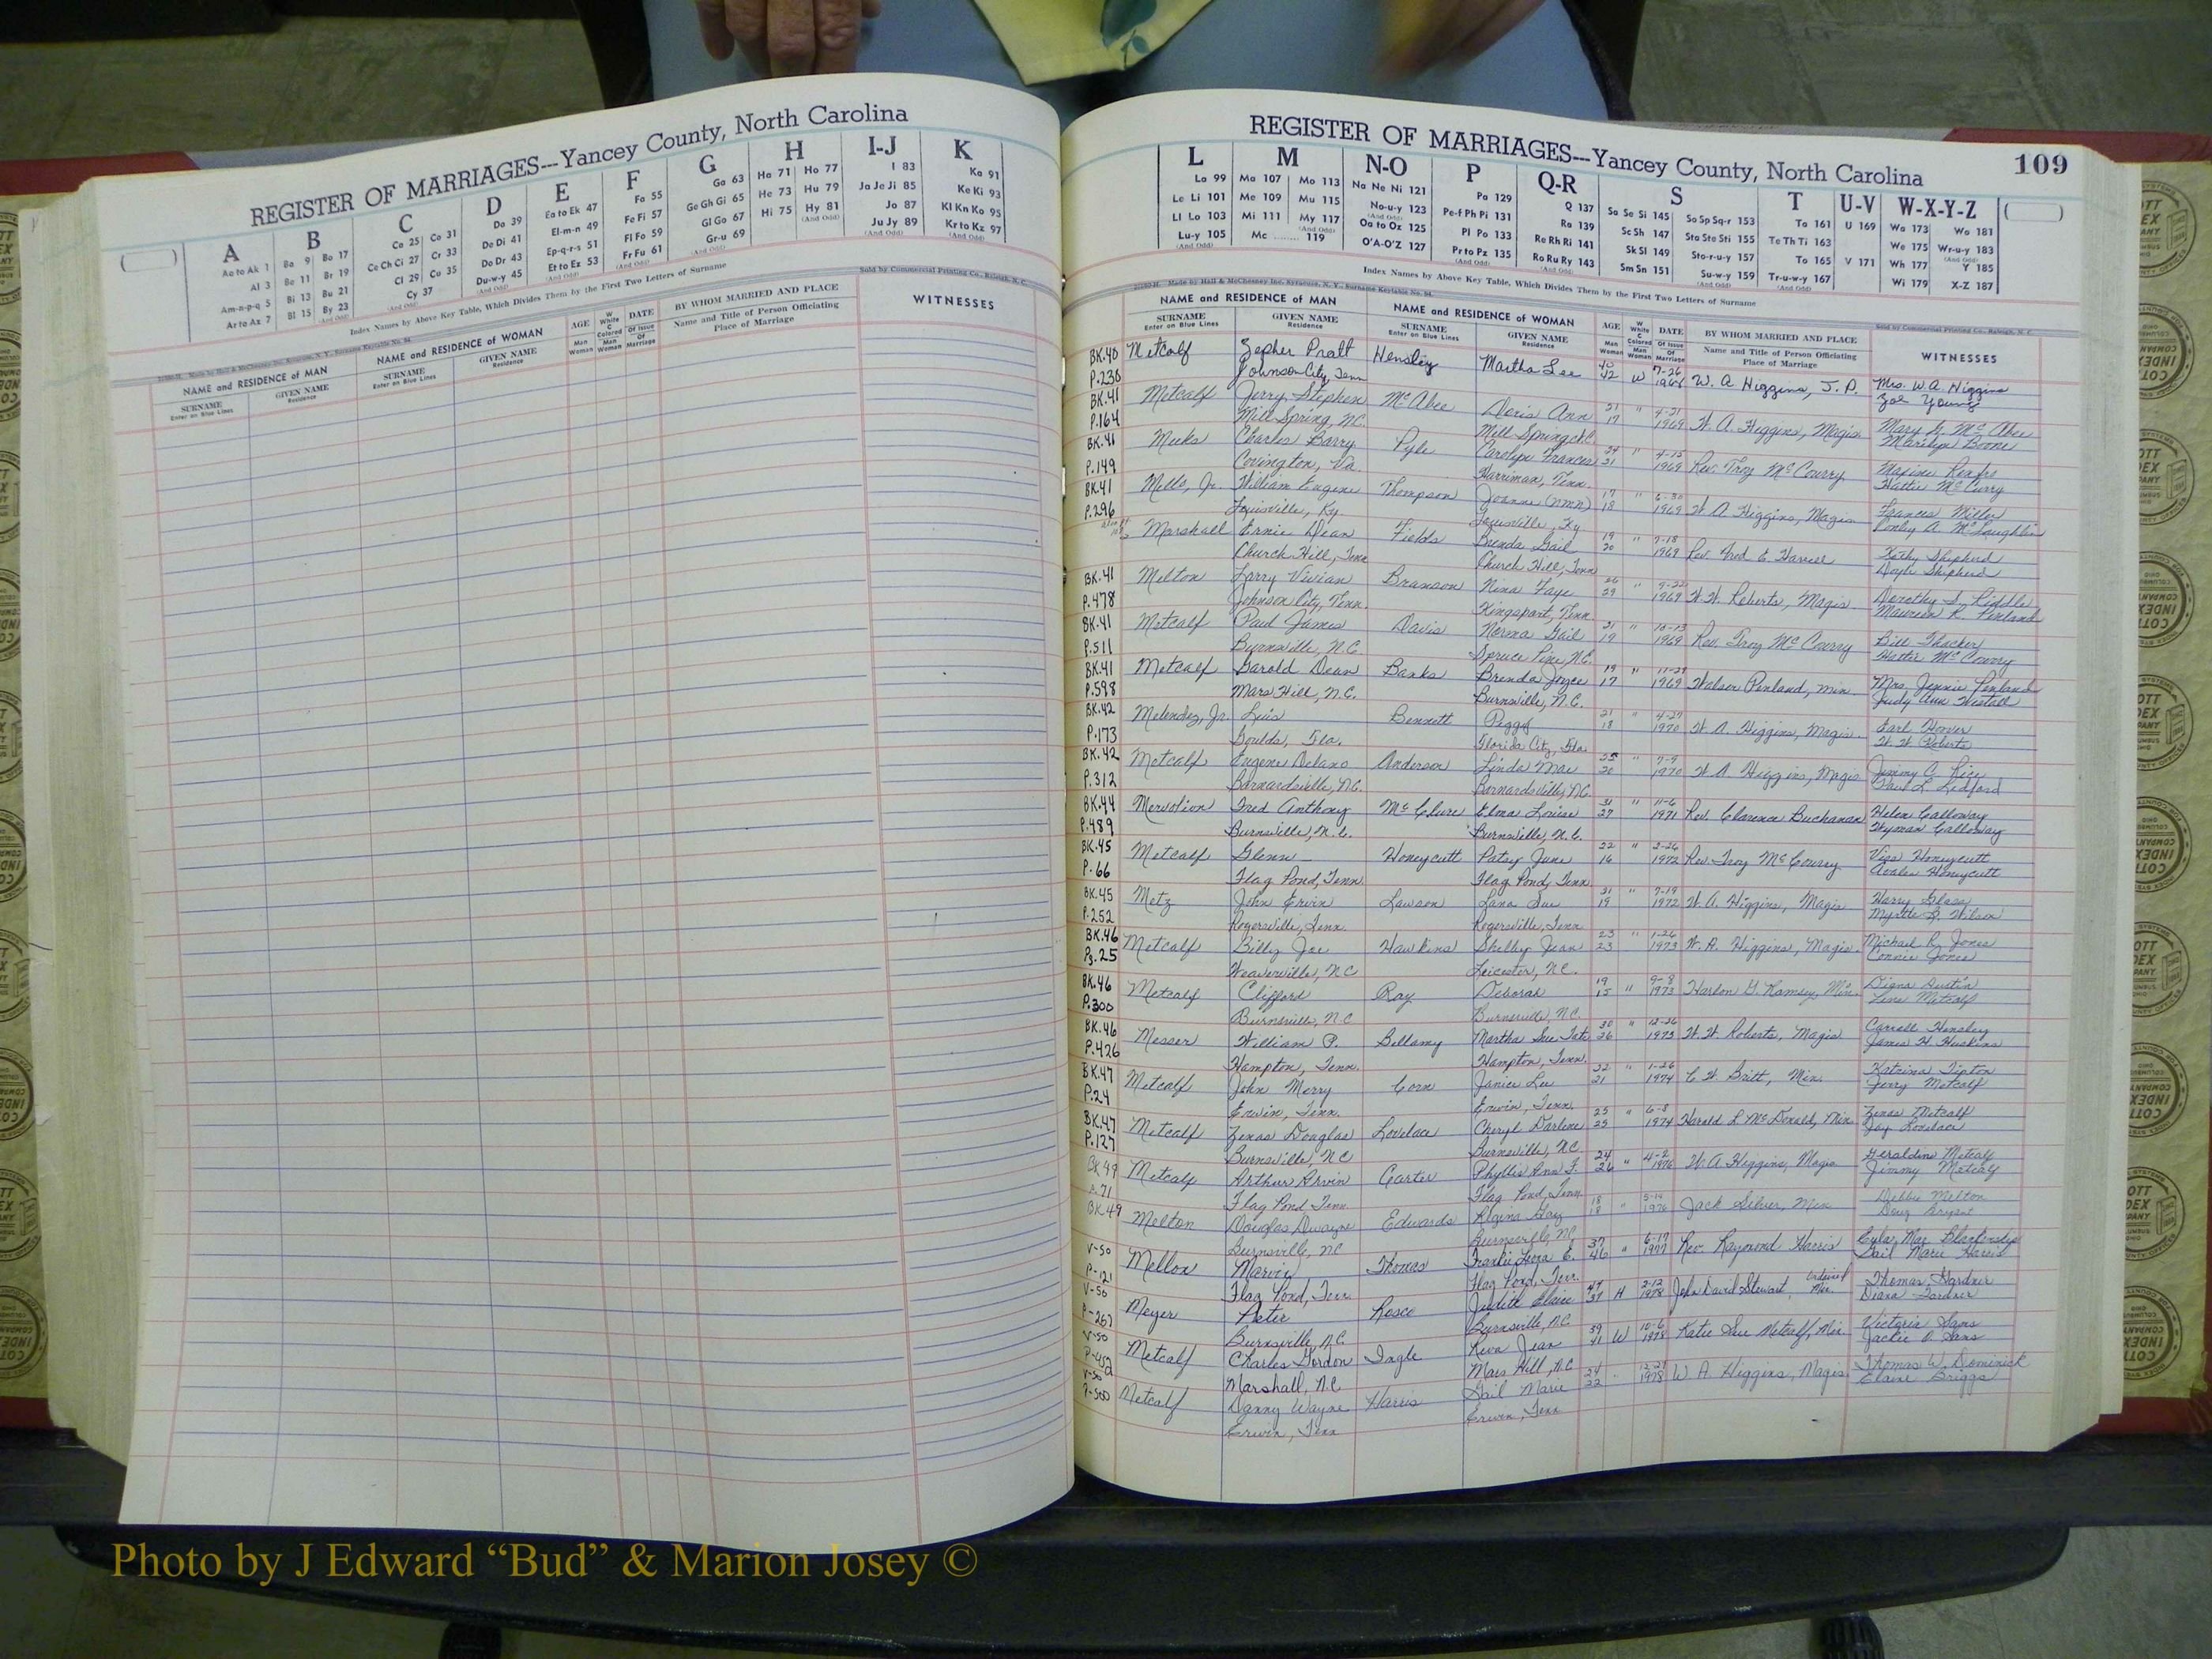 REGISTER OF MARRIAGES---Yancey County, North Carolina
A B C D E F G H I-J K
Aa to Ak 1 Ba 9 Bo 17 Ca 25 Co 31 Da 39 Ea to Ek 47 Fa 55 Ga 63 Ha 71 Ho 77 I 83 Ka 91
Al 3 Be 11 Br 19 Ce Ch Ci 27 Cr 33 De Di 41 El-m-n 49 Fe Fi 57 Ge Gh Gi 65 He 73 Hu 79 Ja Je Ji 85 Ke Ki 93
Am-n-p-q 5 Bi 13 Bu 21 Cl 29 Cu 35 Do Dr 43 Ep-q-r-s 51 Fl Fo 59 Gl Go 67 Hi 75 Hy 81 Jo 87 Kl Kn Ko 95
Ar to Az 7 Bl 15 By 23 Cy 37 Du-w-y 45 Et to Ez 53 Fr Fu 61 Gr-u 69 (And Odd) Ju Jy 89 Kr to Kz 97
Index Names by Above Key Table, Which Divides Them by the First Two Letters of Surname
Sold by Commercial Printing Co., Raleigh, N. C.
NAME and RESIDENCE of MAN NAME and RESIDENCE of WOMAN AGE DATE BY WHOM MARRIED AND PLACE WITNESSES
SURNAME GIVEN NAME SURNAME GIVEN NAME Name and Title of Person Officiating
Enter on Blue Lines Residence Enter on Blue Lines Residence Place of Marriage
REGISTER OF MARRIAGES---Yancey County, North Carolina 109
L M N-O P Q-R S T U-V W-X-Y-Z
La 99 Ma 107 Mo 113 Na Ne Ni 121 Pa 129 Q 137 Sa Se Si 145 So Sp Sq-r 153 Ta 161 U 169 Wa 173 Wo 181
Le Li 101 Me 109 Mu 115 No-u-y 123 Pe-f Ph Pi 131 Ra 139 Sc Sh 147 Sta Ste Sti 155 Te Th Ti 163 We 175 Wr-u-y 183
Ll Lo 103 Mi 111 My 117 Oa to Oz 125 Pl Po 133 Re Rh Ri 141 Sk Sl 149 Sto-r-u-y 157 To 165 V 171 Wh 177 Y 185
Lu-y 105 Mc 119 O'A-O'Z 127 Pr to Pz 135 Ro Ru Ry 143 Sm Sn 151 Su-w-y 159 Tr-u-w-y 167 Wi 179 X-Z 187
Index Names by Above Key Table, Which Divides Them by the First Two Letters of Surname
Made by Hall & McChesney Inc. Syracuse, N. Y., Surname Keytable No. 84. Sold by Commercial Printing Co., Raleigh, N. C.
NAME and RESIDENCE of MAN NAME and RESIDENCE of WOMAN AGE DATE BY WHOM MARRIED AND PLACE WITNESSES
SURNAME GIVEN NAME SURNAME GIVEN NAME Name and Title of Person Officiating
Enter on Blue Lines Residence Enter on Blue Lines Residence Place of Marriage
BK.40 Metcalf Zepher Pratt Hensley Martha Lee 42 W 7-26 W. A. Higgins, J. P. Mrs. W. A. Higgins
P.230 Johnson City, Tenn Zoe Young
BK.41 Metcalf Jerry Stephen McAbee Doris Ann 17 " 1969 W. A. Higgins, Magis. Mary McAbee
P.164 Mill Spring, N.C. Mill Spring N.C. Marilyn Boone
BK.41 Meeks Charles Barry Pyle Carolyn Frances 21 " 1969 Rev. Troy McCourry Maxine
P.149 Covington, Va. Harriman, Tenn. Hattie McCurry
BK.41 Mells, Jr. William Eugene Thompson Joanne (NMN) 17 18 " 6-30 1969 W. A. Higgins, Magis Frances Miller
P.296 Louisville, Ky. Louisville, Ky. A. McLaughlin
Marshall Ernie Dean Fields Brenda Gail 19 20 " 7-18 1969 Rev. Fred E. Kathy Shepherd
Church Hill, Tenn Church Hill, Tenn Doyle Shepherd
BK.41 Melton Larry Vivian Branson Nina Faye 29 " 1969 W. W. Roberts, Magis Dorothy S. Riddle
P.478 Johnson City, Tenn. Kingsport, Tenn. Maureen K. Penland
BK.41 Metcalf Paul James Davis Norma Gail 21 19 " 10-13 1969 Rev. Troy McCourry Bill Thacker
P.511 Burnsville, N.C. Spruce Pine, N.C. Hattie McCourry
BK.41 Metcalf Garold Dean Banks Brenda Joyce 19 17 " 1969 Walser Penland, Min. Mrs. Jennie Penland
P.598 Mars Hill, N.C. Burnsville, N.C. Judy Ann Westall
BK.42 Melendez, Jr. Luis Bennett Peggy 21 18 " 1970 W. A. Higgins, Magis. Earl Hoover
P.173 Goulds, Fla. Florida City, Fla. W. W. Roberts
BK.42 Metcalf Eugene Delano Anderson Linda Mae 25 20 " 7-9 1970 W. A. Higgins, Magis Jimmy C. Rice
P.312 Barnardsville, N.C. Barnardsville, N.C. Paul L. Ledford
BK.44 Mervolion Fred Anthony McClure Edna Louise 31 27 " 11-6 1971 Rev. Clarence Buchanan Helen Calloway
P.489 Burnsville, N.C. Burnsville, N.C. Wyman Calloway
BK.45 Metcalf Glenn Honeycutt Patsy June 22 16 " 2-26 1972 Rev. Troy McCourry Honeycutt
P.66 Flag Pond, Tenn. Flag Pond, Tenn. Honeycutt
BK.45 Metz John Ervin Lawson Lana Sue 31 19 " 7-19 1972 W. A. Higgins, Magis Harry Glass
P.252 Rogersville, Tenn. Rogersville, Tenn. Myrtle B. Wilson
BK.46 Metcalf Billy Joe Hawkins Shelby Jean 23 23 " 1-26 1973 W. A. Higgins, Magis. Michael R. Jones
Pg.25 Weaverville, NC Leicester, N.C. Connie Jones
BK.46 Metcalf Clifford Ray Deborah 19 15 " 9-8 1973 Harlon G. Ramsey, Min. Digna Austin
P.300 Burnsville, N.C Burnsville, N.C. Lena Metcalf
BK.46 Messer William P. Bellamy Martha Sue Tate 30 26 " 12-26 1973 W. W. Roberts, Magis Carroll Hensley
P.426 Hampton, Tenn. Hampton, Tenn. James H. Huskins
BK.47 Metcalf John Merry Corn Janice Lee 22 21 " 1-26 1974 C. W. Britt, Min. Katrina Tipton
P.24 Erwin, Tenn. Erwin, Tenn. Jerry Metcalf
BK.47 Metcalf Zenas Douglas Lovelace Cheryl Darlene 25 25 " 6-8 1974 Harold L. McDonald, Min Zenas Metcalf
P.127 Burnsville, NC Burnsville, NC Jay Lovelace
BK 49 Metcalf Arthur Arvin Carter Phyllis Ann F. 24 26 " 4-2 1976 W. A. Higgins, Magis Geraldine Metcalf
P.71 Flag Pond Tenn Flag Pond, Tenn. Jimmy Metcalf
BK.49 Melton Douglas Dwayne Edwards Regina Gay 18 18 " 5-14 1976 Jack Silver, Min Debbie Melton
Burnsville, NC Burnsville, NC Doug Bryant
V-50 Mellon Marvin Thomas Frankie Leona E. 37 46 " 6-17 1977 Rev. Raymond Harris Mae Blankenship
P-121 Flag Pond, Tenn Flag Pond, Tenn. Gail Marie Harris
V-50 Meyer Peter Rosco Judith Elaine 47 37 H 2-12 1978 John David Stewart, Ordained Min. Thomas Gardner
P-267 Burnsville, N.C. Burnsville, NC Diana Gardner
V-50 Metcalf Charles Gordon Ingle Reva Jean 39 41 W 10-6 1978 Katie Sue Metcalf, Min. Victoria Sams
P-452 Marshall, N.C Mars Hill, NC Jackie D. Sams
V-50 Metcalf Danny Wayne Harris Gail Marie 24 22 1978 W. A. Higgins, Magis. Thomas W. Dominick
P-500 Erwin, Tenn Erwin, Tenn Elaine Briggs
Photo by J Edward “Bud” & Marion Josey ©